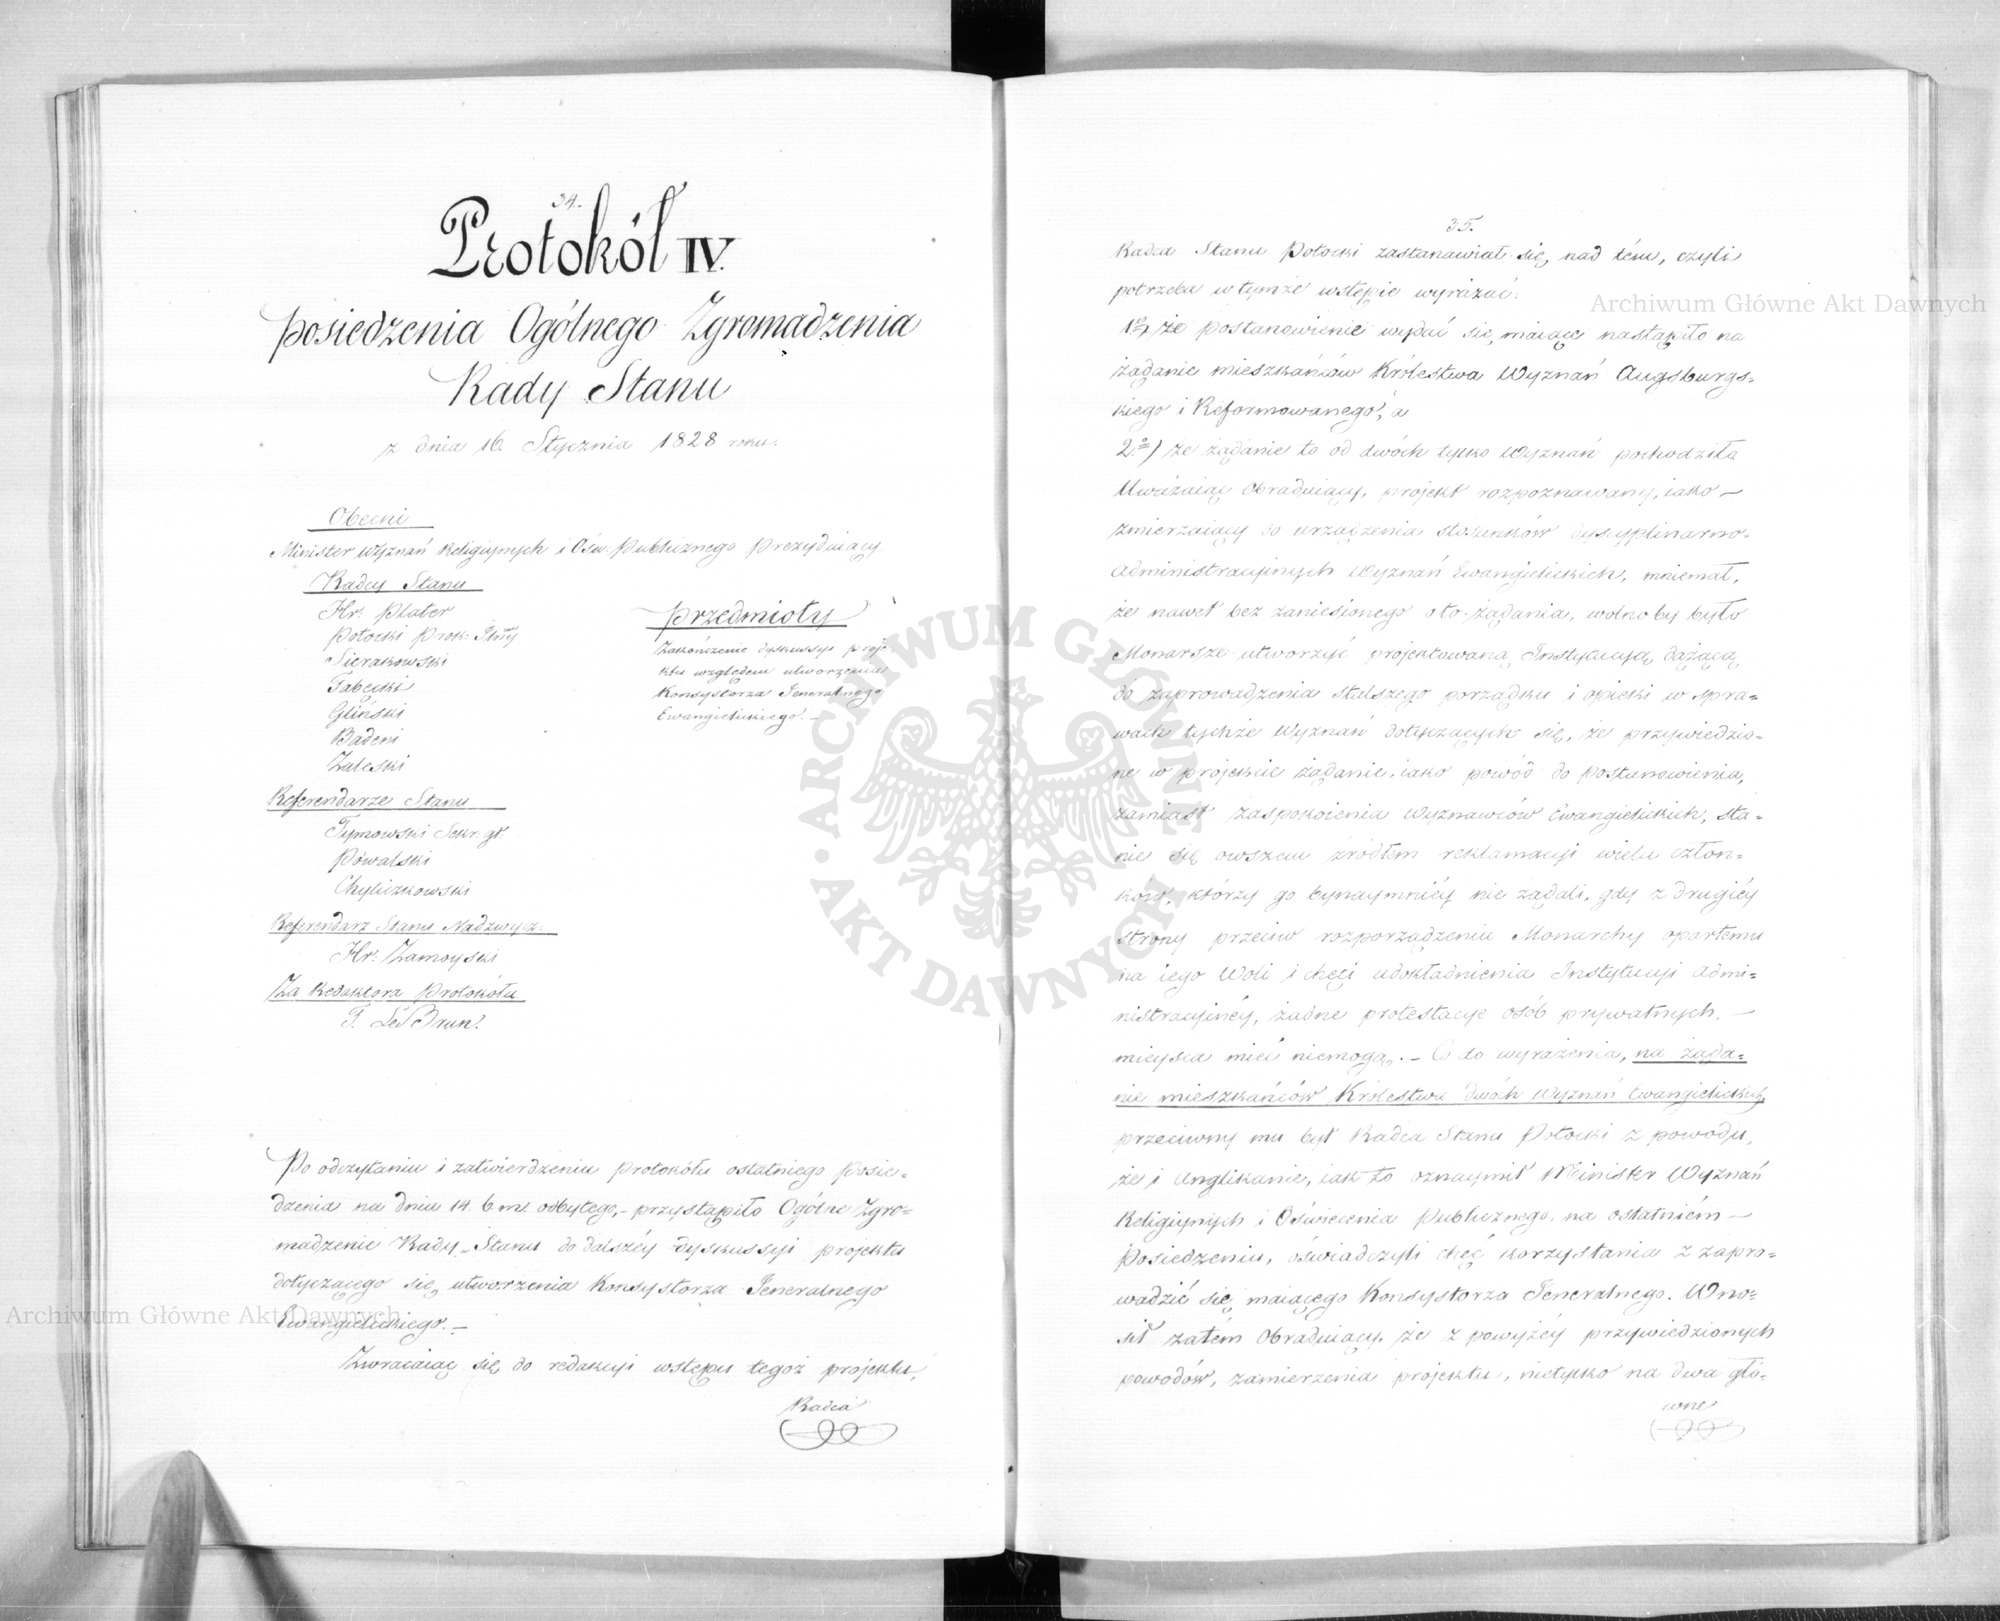 34.
Protokół IV.
Posiedzenia Ogólnego Zgromadzenia
Rady Stanu
z dnia 16. Stycznia 1828 roku.
Obecni
Minister Wyznań Religiynych i Ośw. Publicznego Prezyduiący
Radcy Stanu
Hr. Plater
Potocki Prok:
Sierakowski
Tabęcki
Gliński
Badeni
Zaleski
Referendarze Stanu
Tymowski Sekr. gł.
Pówalski
Chyliczkowski
Referendarz Stanu Nadzwycz:
Hr. Zamoyski
Za Redaktora Protokółu
T. Le Brun.
Przedmioty
Zakończenie dyskussyi proje-
ktu względem utworzenia
Konsystorza Jeneralnego
Ewangielickiego. –
Po odczytaniu i zatwierdzeniu Protokółu ostatniego Posie-
dzenia na dniu 14. b. m. odbytego, – przystąpiło Ogólne Zgro-
madzenie Rady Stanu do dalszéy dyskussyi projektu
dotyczącego się utworzenia Konsystorza Jeneralnego
Ewangielickiego. –
Zwracaiąc się do redakcyi wstępu tegoż projektu,
Radca
35.
Radca Stanu Potocki zastanawiał się nad tém, czyli
potrzeba w tymże wstępie wyrażać:
1º, że postanowienie wydać się maiące nastąpiło na
żądanie mieszkańców Królestwa Wyznań Augsburgs-
kiego i Reformowanego, a
2.º) że żądanie to od dwóch tylko Wyznań pochodziła
Uważaiąc Obraduiący, projekt rozpoznawany, iako –
zmierzaiący do urządzenia stosunków dyscyplinarno-
administracyinych Wyznań Ewangielickich, mniemał,
że nawet bez zaniesionego oto żądania, wolno by było
Monarsze utworzyć projektowaną Instytucyą, dążącą
do zaprowadzenia stalszego porządku i opieki w spra-
wach tychże Wyznań dotyczących się, że przywiedzio-
ne w projekcie żądanie, iako powód do postanowienia,
zamiast zaspokoienia Wyznawców Ewangielickich, sta-
nie się owszem źródłem reklamacyi wielu człon-
ków, którzy go bynaymniéy nie żądali, gdy z drugiéy
strony przeciw rozporządzeniu Monarchy opartemu
na iego Woli i chęci udokładnienia Instytucyi admi-
nistracyinéy, żadne protestacye osób prywatnych, –
mieysca mieć niemogą. – Co do wyrażenia, na żąda-
nie mieszkańców Królestwa dwóch Wyznań Ewangielickich,
przeciwny mu był Radca Stanu Potocki z powodu,
że i Anglikanie, iak to oznaymił Minister Wyznań
Religiynych i Oświecenia Publicznego, na ostatniém –
Posiedzeniu, oświadczyli chęć korzystania z zapro-
wadzić się maiącego Konsystorza Jeneralnego. Wno-
sił zatém Obraduiący, że z powyżéy przywiedzionych
powodów, zamierzenia projektu, nietylko na dwa głó-
wne
Archiwum Główne Akt Dawnych
Archiwum Główne Akt Dawnych
ARCHIWUM GŁÓWNE • AKT DAWNYCH •